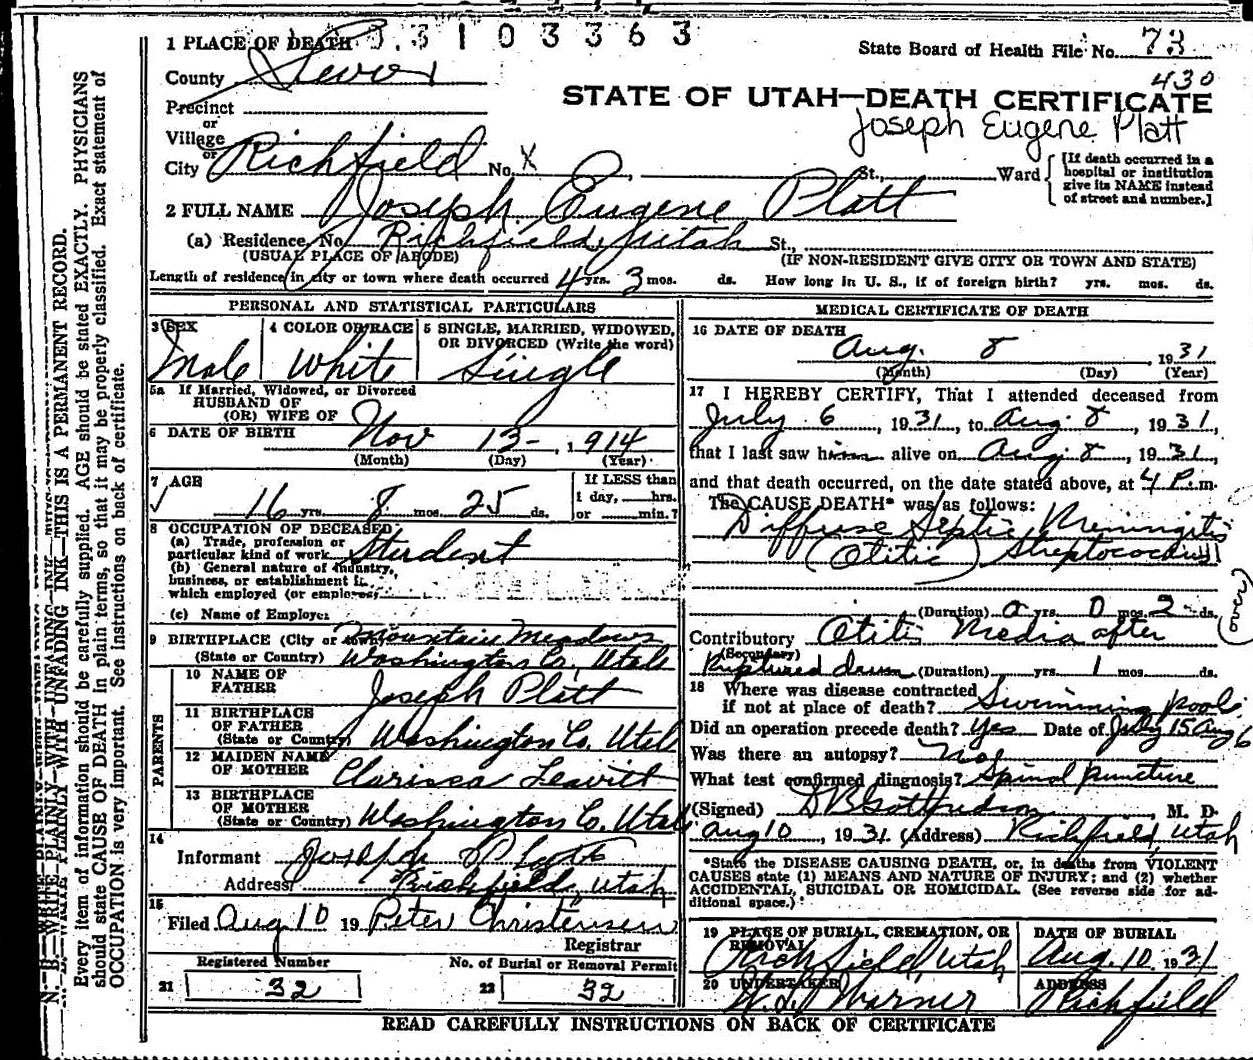 1 PLACE OF DEATH 0.3103363
State Board of Health File No. 73
430
County Sevier
STATE OF UTAH—DEATH CERTIFICATE
Joseph Eugene Platt
Precinct
or
Village
or
City Richfield No. X , St., Ward
[If death occurred in a hospital or institution give its NAME instead of street and number.]
2 FULL NAME Joseph Eugene Platt
(a) Residence, No. Richfield, Utah St.,
(USUAL PLACE OF ABODE) (IF NON-RESIDENT GIVE CITY OR TOWN AND STATE)
Length of residence in city or town where death occurred 4 yrs. 3 mos. ds. How long in U. S., if of foreign birth? yrs. mos. ds.
PERSONAL AND STATISTICAL PARTICULARS
3 SEX Male
4 COLOR OR RACE White
5 SINGLE, MARRIED, WIDOWED, OR DIVORCED (Write the word) Single
5a If Married, Widowed, or Divorced
HUSBAND OF
(OR) WIFE OF
6 DATE OF BIRTH Nov 13- , 1914
(Month) (Day) (Year)
7 AGE 16 yrs. 8 mos. 25 ds.
If LESS than 1 day, hrs. or min.?
8 OCCUPATION OF DECEASED
(a) Trade, profession or particular kind of work Student
(b) General nature of industry, business, or establishment in which employed (or employer)
(c) Name of Employer
9 BIRTHPLACE (City or town) Mountain Meadows
(State or Country) Washington Co, Utah
PARENTS
10 NAME OF FATHER Joseph Platt
11 BIRTHPLACE OF FATHER
(State or Country) Washington Co. Utah
12 MAIDEN NAME OF MOTHER Clarissa Leavitt
13 BIRTHPLACE OF MOTHER
(State or Country) Washington Co. Utah
14
Informant Joseph Platt
Address Richfield, Utah
15
Filed Aug 10 19 Peter Christensen
Registrar
Registered Number No. of Burial or Removal Permit
21 32 22 32
MEDICAL CERTIFICATE OF DEATH
16 DATE OF DEATH
Aug. 8 1931
(Month) (Day) (Year)
17 I HEREBY CERTIFY, That I attended deceased from
July 6, 1931, to Aug. 8, 1931,
that I last saw him alive on Aug. 8, 1931,
and that death occurred, on the date stated above, at 4 P.m.
The CAUSE DEATH* was as follows:
Diffuse Septic Meningitis
(Otitic) Streptococcus
(over)
(Duration) 0 yrs. 0 mos. 2 ds.
Contributory Otitis Media after
(Secondary)
Ruptured drum (Duration) yrs. 1 mos. ds.
18 Where was disease contracted
if not at place of death? Swimming pool
Did an operation precede death? Yes Date of July 15 Aug 6
Was there an autopsy? No
What test confirmed diagnosis? Spinal puncture
(Signed) D B Gottfredson, M. D.
Aug 10, 1931 (Address) Richfield, Utah
*State the DISEASE CAUSING DEATH, or, in deaths from VIOLENT
CAUSES state (1) MEANS AND NATURE OF INJURY; and (2) whether
ACCIDENTAL, SUICIDAL OR HOMICIDAL. (See reverse side for additional space.)
19 PLACE OF BURIAL, CREMATION, OR REMOVAL Richfield, Utah
DATE OF BURIAL Aug. 10, 1931
20 UNDERTAKER Warner
ADDRESS Richfield
READ CAREFULLY INSTRUCTIONS ON BACK OF CERTIFICATE
N. B.—WRITE PLAINLY WITH UNFADING INK—THIS IS A PERMANENT RECORD.
Every item of information should be carefully supplied. AGE should be stated EXACTLY. PHYSICIANS
should state CAUSE OF DEATH in plain terms, so that it may be properly classified. Exact statement of
OCCUPATION is very important. See instructions on back of certificate.